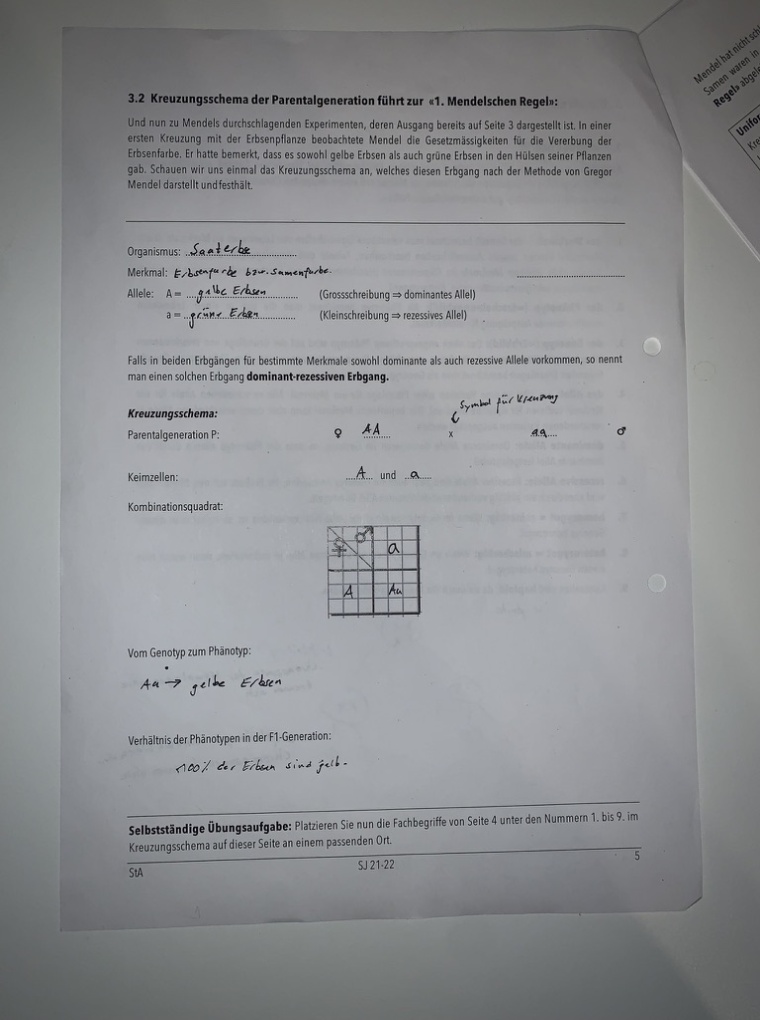 3.2 Kreuzungsschema der Parentalgeneration führt zur «1. Mendelschen Regel»:
Und nun zu Mendels durchschlagenden Experimenten, deren Ausgang bereits auf Seite 3 dargestellt ist. In einer
ersten Kreuzung mit der Erbsenpflanze beobachtete Mendel die Gesetzmässigkeiten für die Vererbung der
Erbsenfarbe. Er hatte bemerkt, dass es sowohl gelbe Erbsen als auch grüne Erbsen in den Hülsen seiner Pflanzen
gab. Schauen wir uns einmal das Kreuzungsschema an, welches diesen Erbgang nach der Methode von Gregor
Mendel darstellt und festhält.
Mendel hat nicht
Samen waren in
Regel»
Organismus: Saaterbe
Merkmal: Erbsenfarbe bzw. Samenfarbe
Allele: A = gelbe Erbsen (Grossschreibung ⇒ dominantes Allel)
a = grüne Erbsen (Kleinschreibung ⇒ rezessives Allel)
Falls in beiden Erbgängen für bestimmte Merkmale sowohl dominante als auch rezessive Allele vorkommen, so nennt
man einen solchen Erbgang dominant-rezessiven Erbgang.
Symbol für Kreuzung
Kreuzungsschema:
Parentalgeneration P: ♀ AA x aa ♂
Keimzellen: A und a
Kombinationsquadrat:
♀ ♂ a
A Aa
Vom Genotyp zum Phänotyp:
Aa → gelbe Erbsen
Verhältnis der Phänotypen in der F1-Generation:
100% der Erbsen sind gelb.
Selbstständige Übungsaufgabe: Platzieren Sie nun die Fachbegriffe von Seite 4 unter den Nummern 1. bis 9. im
Kreuzungsschema auf dieser Seite an einem passenden Ort.
StA SJ 21-22 5